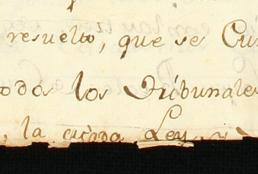 resuelto, que se Cu
odos los Tribunales
la citada Ley, y